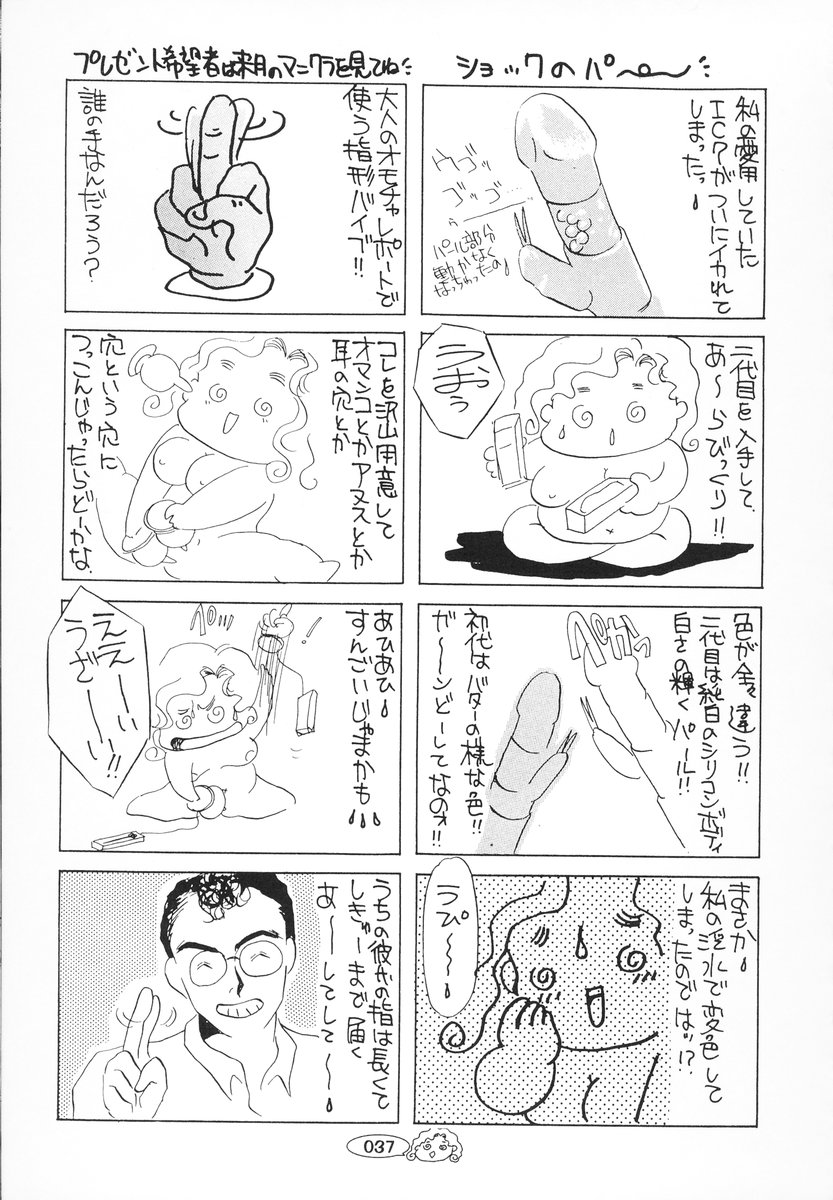 ショックのパ〜〜
私の愛用していた
ICPがついにイカれて
しまったっ
ウゴッ
ゴッゴ…
パール部分
動かなく
なっちゃったの
二代目を入手して
あ〜らびっくり!!
うおぅ
色が全々違う!!
二代目は純白のシリコンボディ
白さの輝くパール!!
ペかっ
初代はバターの様な色!!
が〜〜んどーしてなのォ!!
まさか
私の淫水で変色して
しまったのでは!?
うぴ〜〜〜
プレゼント希望者は来月のマニクラを見てね
大人のオモチャレポートで
使う指形バイブ!!
誰の手なんだろう?
コレを沢山用意して
オマンコとかアヌスとか
耳の穴とか
穴という穴に
つっこんじゃったらどーかな
あひあひ
すんごいじゃまかも
ペロ
ええーい
うざーーい!!
うちの彼氏の指は長くて
しきゅーまで届く
あ〜〜してして〜〜
037